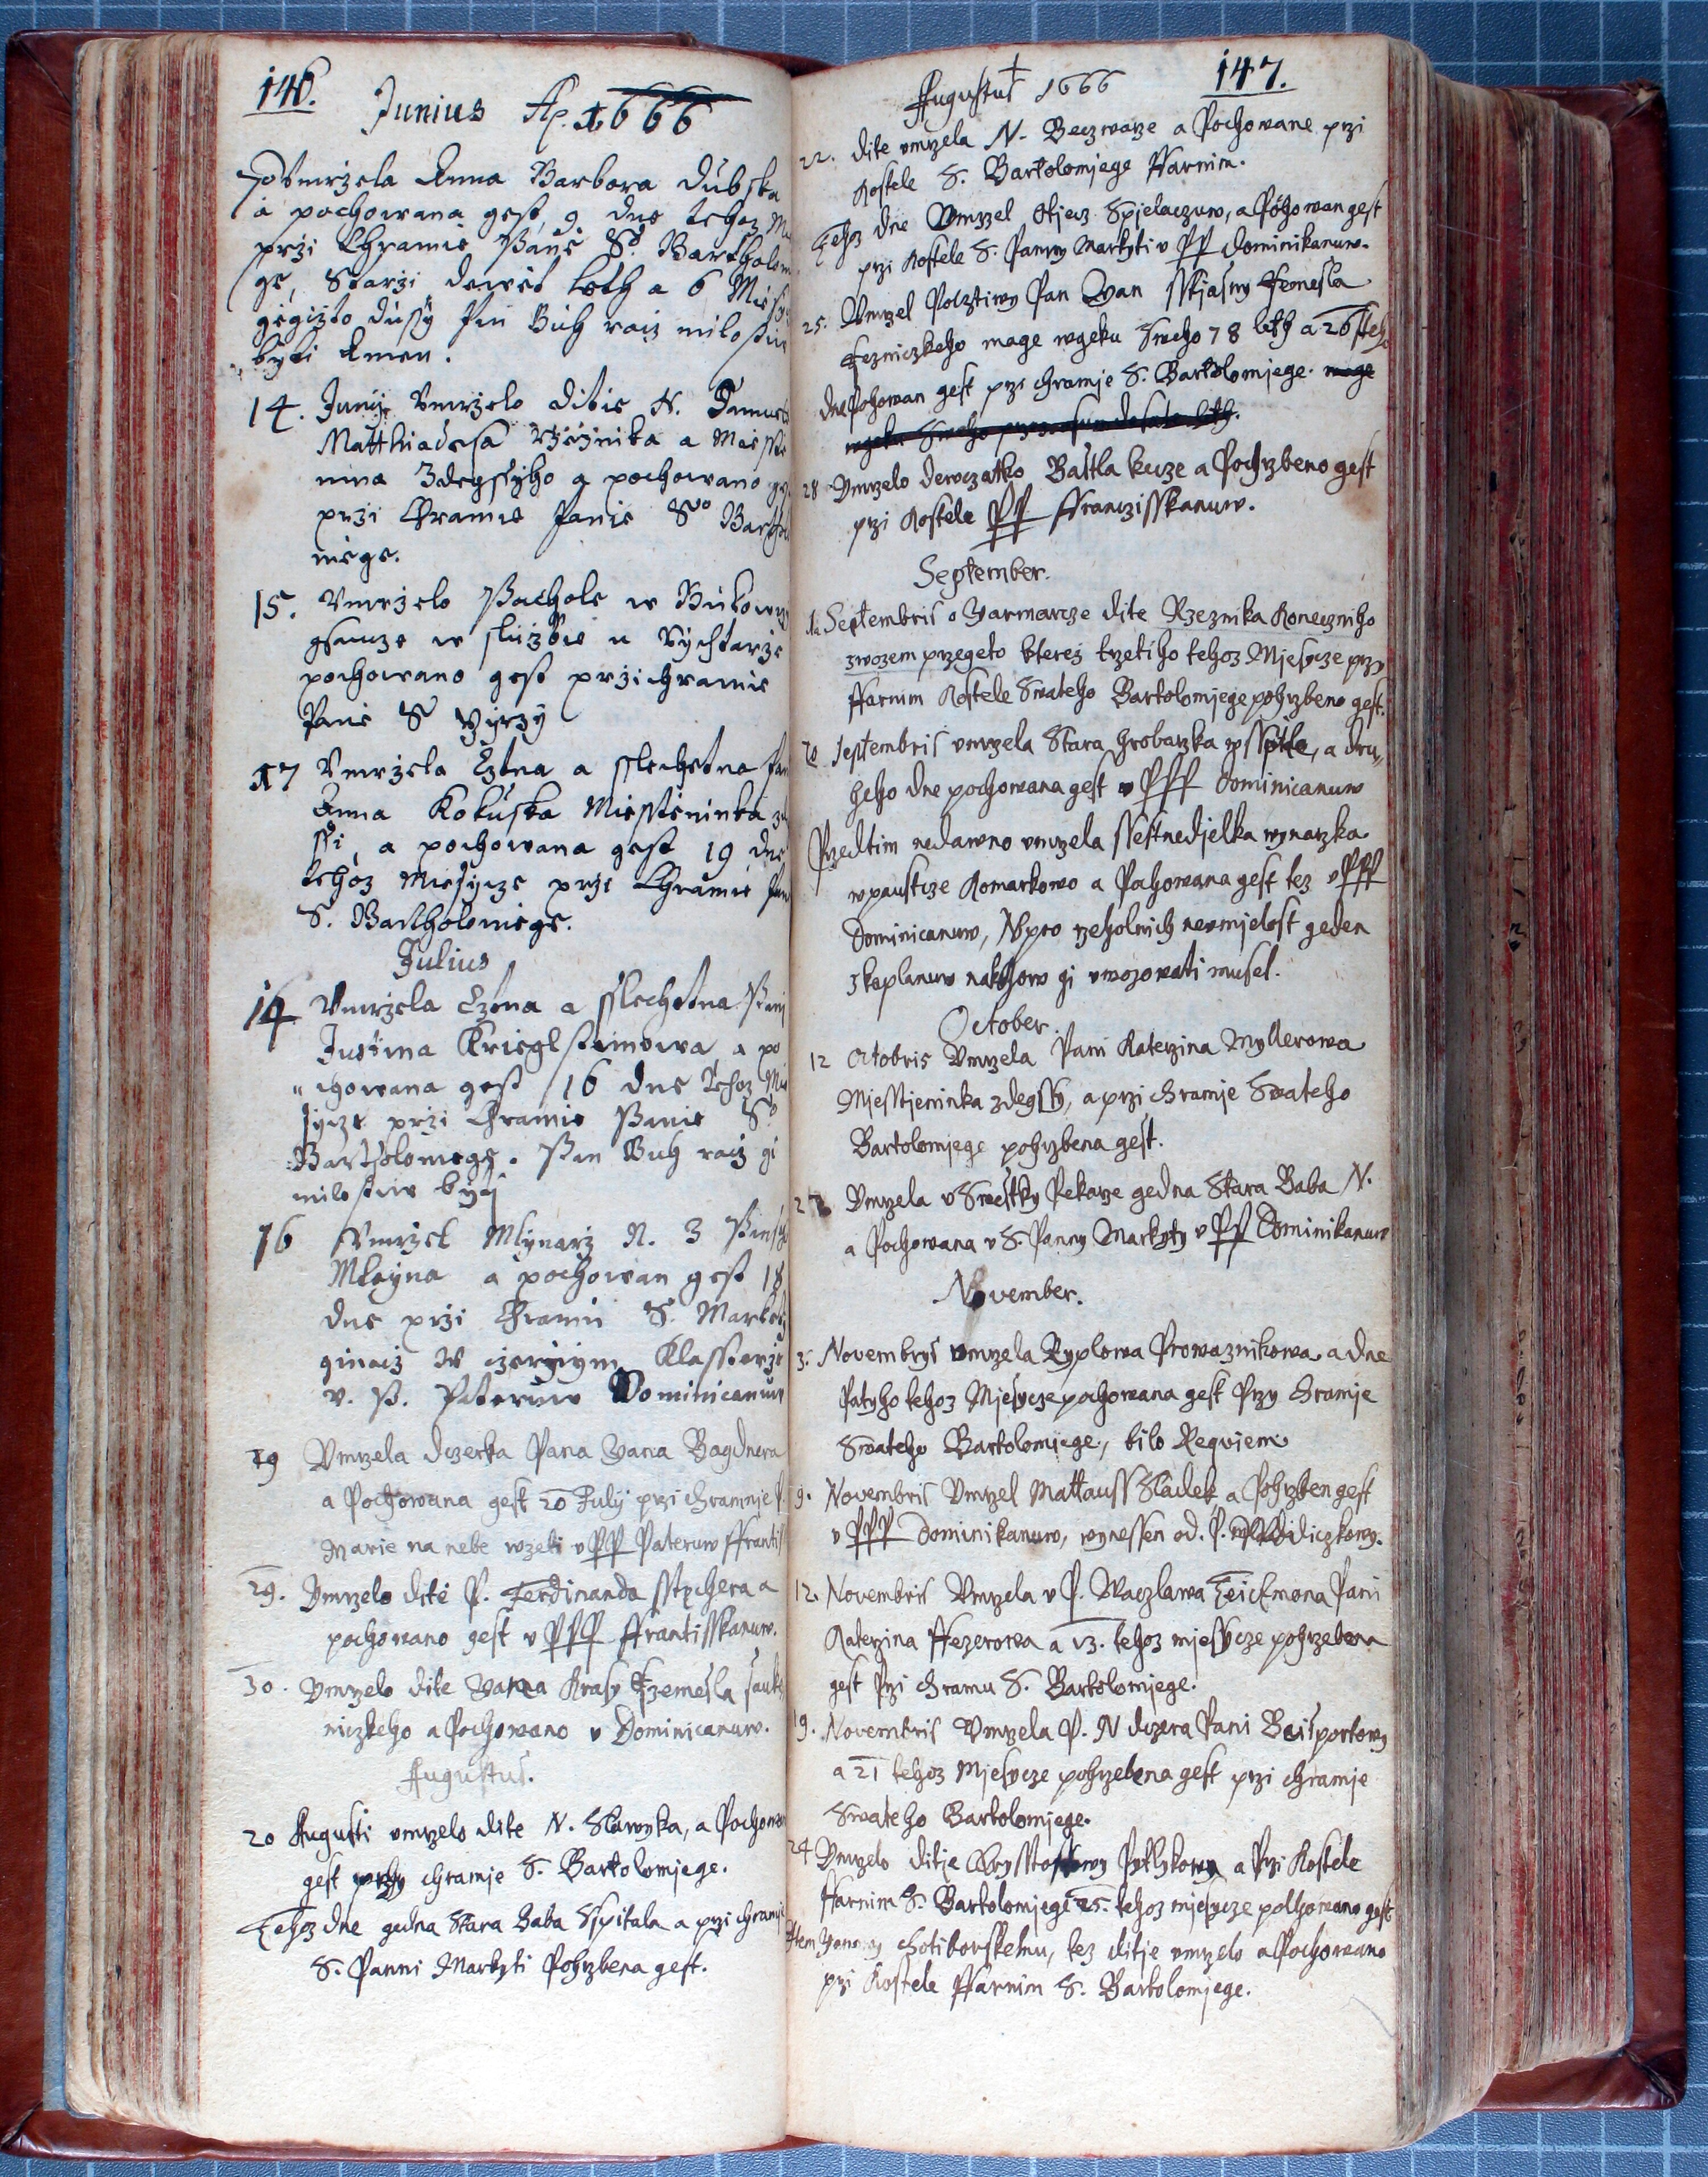 146.
Junius Ao. 1666
7 Vmrzela Anna Barbora Dubska
a pochowana gest 9 dne tehoz M
przi Chramie Panie So. Bartholom
ge, Starzi dewet leth a 6 Miesy
gegizto dussy Pan Buh racz milostiw
byti Amen.
14. Junij Vmrzelo Ditie N. Samuele
Matthiadesa rzeznika a Miesstie
nina Zdegssyho a pochowano ge
przi Chramie Panie So Barthol
miege.
15. Vmrzelo Pachole w Bukowny
gsaucze w sluzbie u Rychtarze
pochowano gest przi chramie
Panie S Girzy
17 Vmrzela Cztna a sslechetna Pan
Anna Kokuska Miesstieninka zd
ssi, a pochowana gest 19 dne
tehoz Miesycze przi Chramie Pan
S. Bartholomiege.
Julius
14 Vmrzela Cztna a sslechetna Pani
Justina Krieglsteinowa, a po
chowana gest 16 dne Tehoz Mie
sycze przi Chramie Panie So
Bartholomege. Pan Buh racz gi
milostiw byti
16 Vmrzel Mlynarz N. z Panskeho
Mleyna a pochowan gest 18
dne przi Chramu S. Markety
ginacz w czernym Klassterze
v. P. Paterum Dominicanum
19 Vmrzela dczerka Pana Yana Bagdnera
a Pochowana gest 20 July przi chramnje P.
Marie na nebe wzeti v PP Pateruw Ffrantiss
29. Vmrzelo dite P. Ferdinanda sstychera a
pochowano gest v PPP Ffrantisskanuw.
30. Vmrzelo dite Yana Krasy Rzemesla sauke
niczkeho a Pochowano v Dominicanuw.
Augustus.
20 Augusti vmrzelo dite N. Slawyka, a Pochowan
gest przy chramje S. Bartolomjege.
Tehoz dne gedna Stara Baba Sspitala a przi chramje
S. Panni Markyti Pohrzbena gest.
147.
Augustus 1666
22. dite vmrzela N. Beczwarze a Pochowane przi
Kostele S. Bartolomjege Ffarnim.
Tehoz dne Vmrzel Otjecz Spjelaczuw, a Pohowan gest
przi Kostele S. Panny Markyti v PP dominikanuw.
25. Vmrzel Pocztiwy Pan Yan Sskjasny Remesla
Rezniczkeho mage wgeku Sweho 78 leth a 26 teho
dne Pohowan gest przi chramje S. Bartolomjege. mage
wgeku Sweho leth.
28 Vmrzelo dewczatko Bartla kucze a Pochrzbeno gest
przi Kostele PP Ffranczisskanuw.
September.
1. Septembris o Yarmarcze dite Rzeznika Koneczniho
zwozem przegeto kterez trzetiho tehoz Mjesycze przy
Ffarnim Kostele Swateho Bartolomjege pohrzbeno gest.
Septembris vmrzela Stara hrobarzka w sspitle, a dru„
heho dne pochowana gest v PPP dominicanuw
Przedtim nedawno vmrzela ssestnedjelka wynarzka
wpaustcze Komarkowo a Pochowana gest tez v PPP
Dominicanuw, Npro rzeholnich neomjelost geden
zkaplanuw nakhow gi vwozowati musel.
October.
12 Octobris Vmrzela Pani Katerzina Myllerowa
Mjesstjeninka zdegssy, a przi chramje Swateho
Bartolomjege pohrzbena gest.
27 Vmrzela v Swestky Pekarze gedna Stara Baba N.
a Pochowana v S. Panny Markyty v PP Dominikanuw
November.
3. Novembris vmrzela Ryplowa Prowaznikowa a dne
Patyho tehoz Mjesycze pochowana gest Przy chramje
Swateho Bartolomiege, bilo Reqviem
9. Novembris Vmrzel Mattauss Sladek, a Pohrzben gest
v PPP Dominikanuw, wynessen od. P.
12. Novembris Vmrzela v P. Waczlawa Teickmana Pani
Katerzina Ffezerowa a 13. tehoz mjesycze pohrzebena
gest Przi chramu S. Bartolomjege.
19. Novembris Vmrzela P. N dczera Pani Beisportowy
a 21 tehoz Mjesycze pohrzebena gest przi chramje
Swateho Bartolomjege.
24 Vmrzelo ditje a Przi Kostele
Ffarnim S. Bartolomjege 25. tehoz mjesycze pochowano gest
Item Yanowy chotiborskemu, tez ditje vmrzelo a Pochowano
przi Kostele Ffarnim S. Bartolomjege.